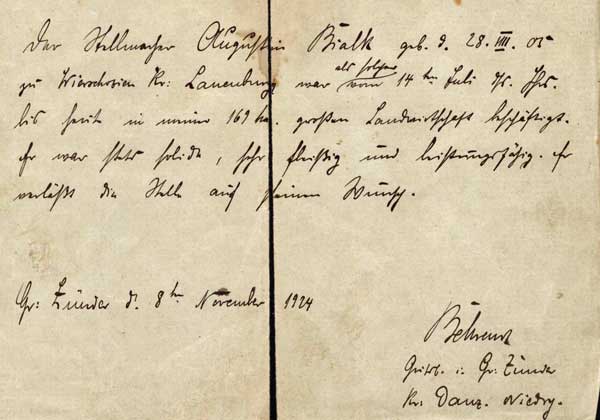 Der Stellmacher Augustin Bialk geb. d. 28. VIII. 05
zu Wierschozien Kr: Lauenburg war als solcher vom 14ten Juli ds. Jhrs.
bis heute in meiner 169 ha. großen Landwirtschaft beschäftigt.
Er war stets solide, sehr fleißig und leistungsfähig. Er
verläßt die Stelle auf seinen Wunsch.
Gr: Zünder d. 8ten November 1924
Behrend
Gutsb. i. Gr: Zünder
Kr: Danz. Niedrg.